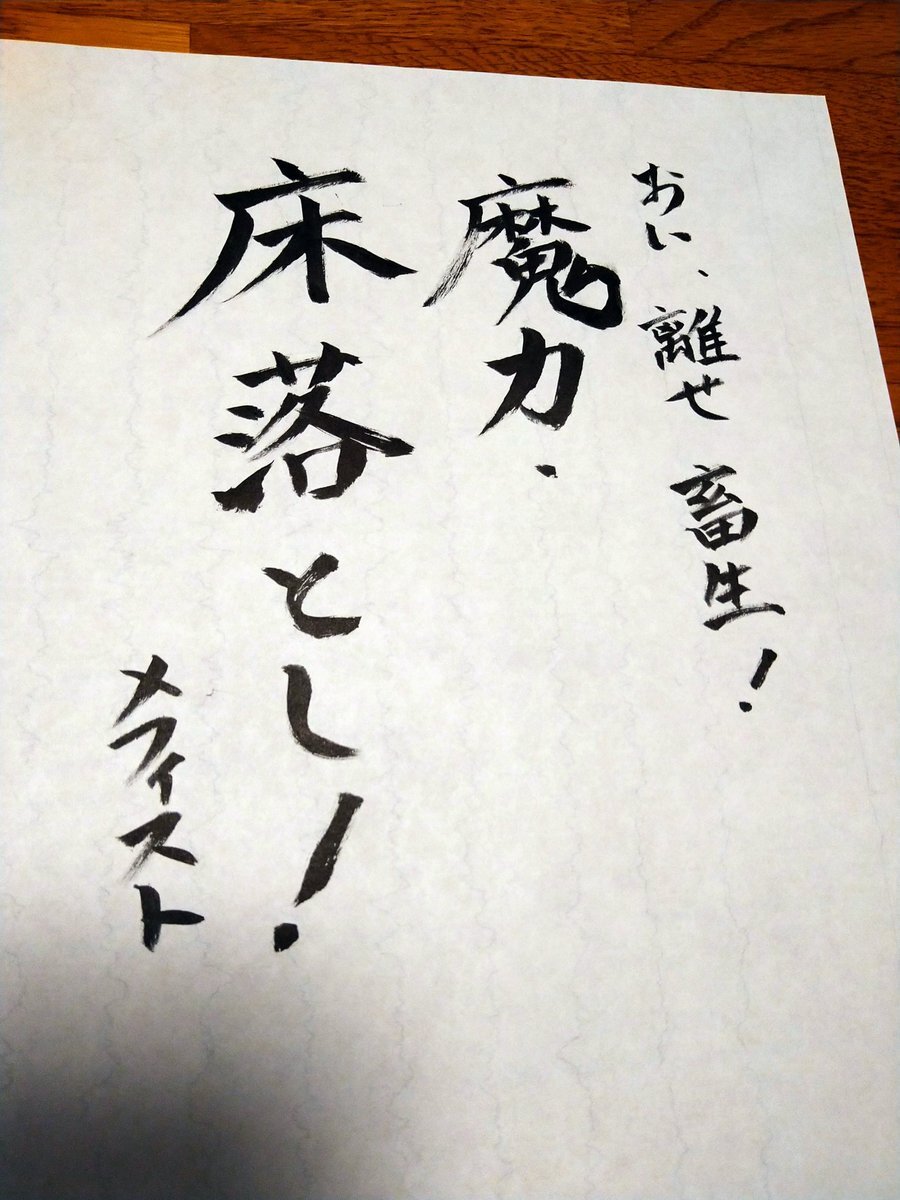 おい、離せ 畜生！
魔力、
床落とし！
メフィスト